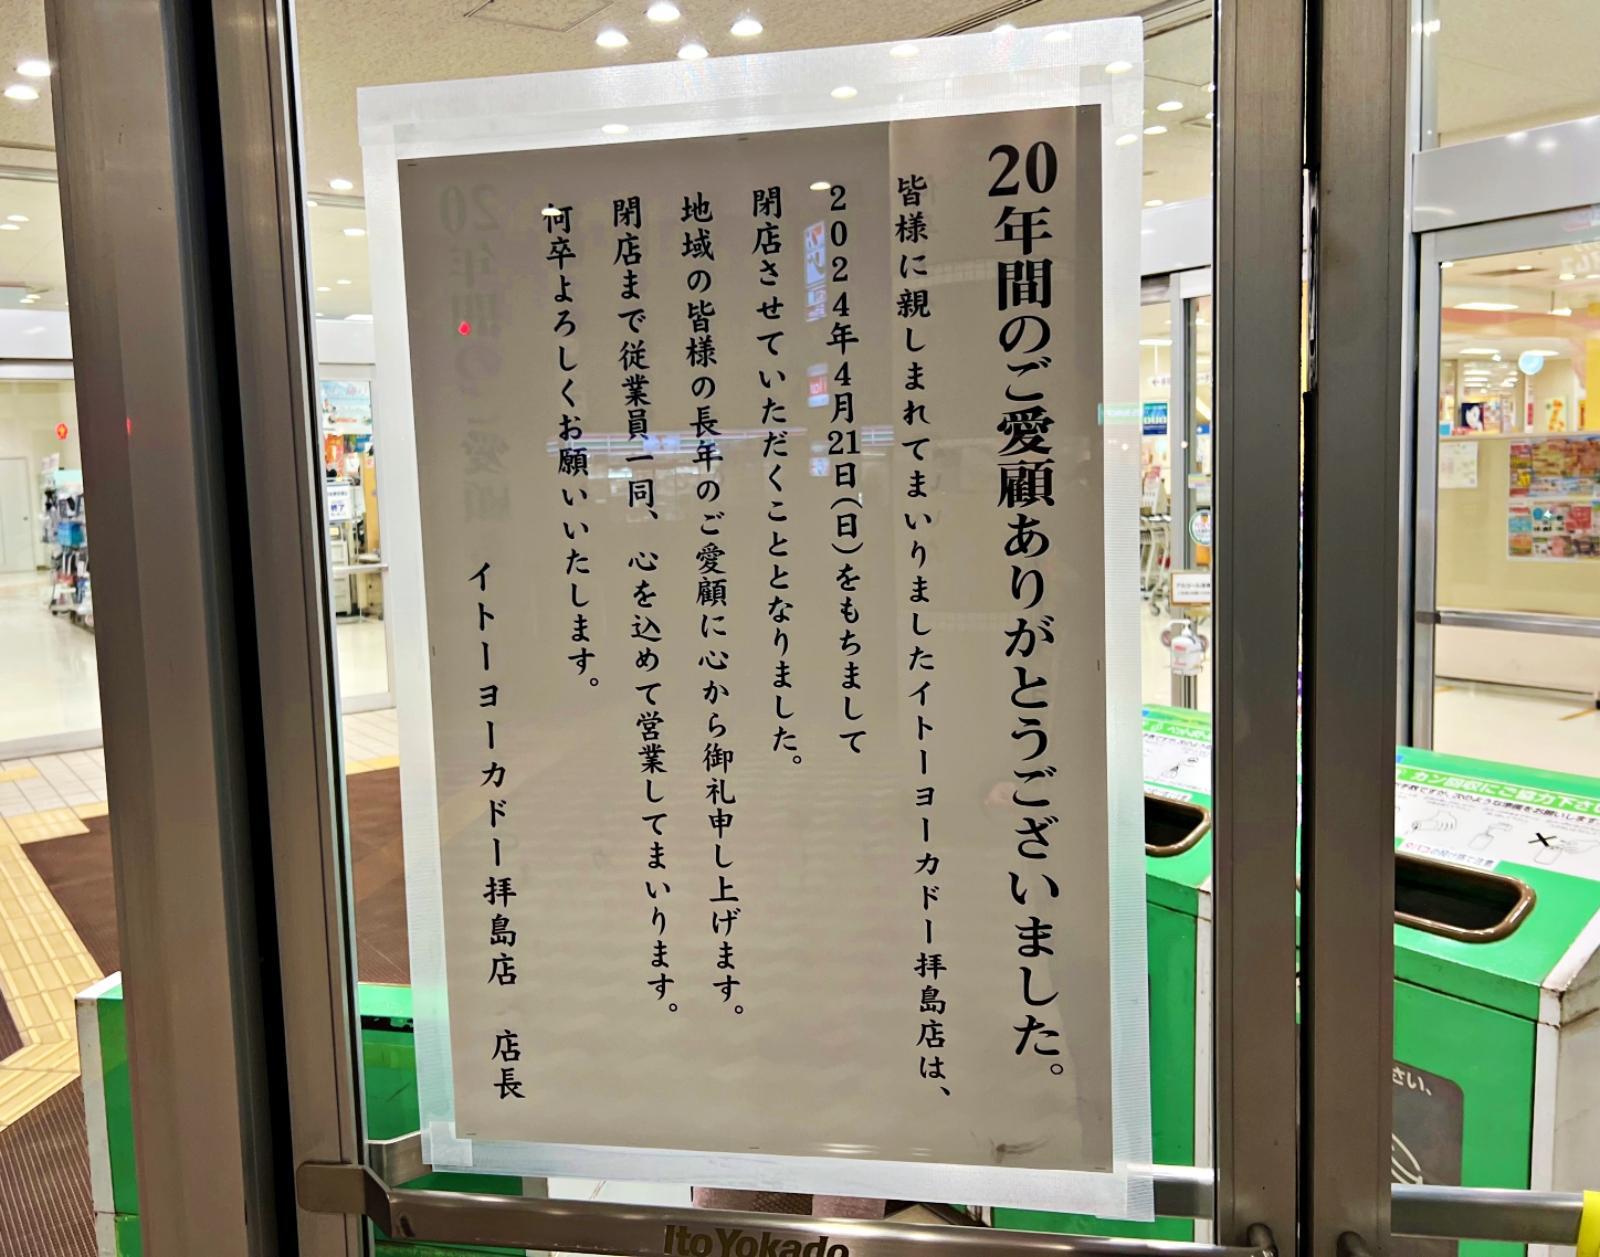 20年間のご愛顧ありがとうございました。
皆様に親しまれてまいりましたイトーヨーカドー拝島店は、
2024年4月21日(日)をもちまして
閉店させていただくこととなりました。
地域の皆様の長年のご愛顧に心から御礼申し上げます。
閉店まで従業員一同、心を込めて営業してまいります。
何卒よろしくお願いいたします。
イトーヨーカドー拝島店 店長
ItoYokado
カン回収にご協力下さい
さい、